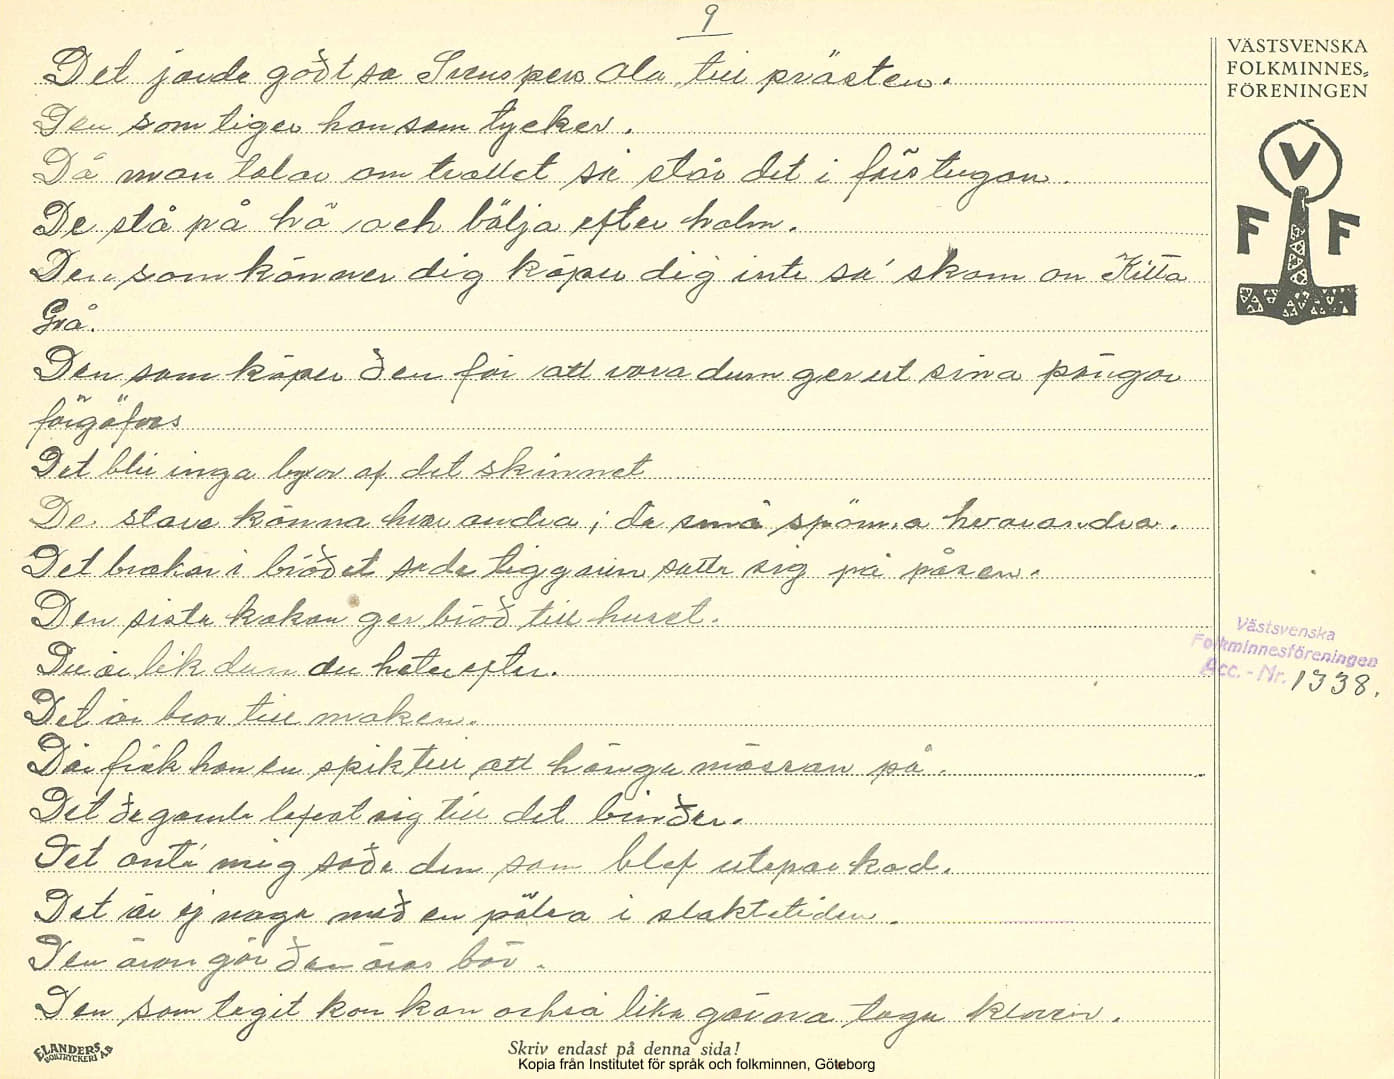 9
Det jorde godt sa Svenspers Ola till prästen.
Den som tiger han som tycker.
Då man talar om trollet så står det i förstugan.
De stå på hö och bölja efter halm.
Den som känner dig köper dig inte sa' skam on Kitta
Grå.
Den som köper den för att vara dum ger ut sina pängar
förgäfvas
Det blir inga byxor af det skinnet
De stora känna hvarandra; de små spänna hvarandra.
Det brakar i brödet sade tiggaren satte sig på påsen.
Den sista kakan ger bröd till huset.
Du är lik dum du heter efter.
Det är bror till maken.
Där fick han en spik till att hänga mössan på.
Det de gamle lefvat sig till det binder.
Det ante mig sade den som blef utsparkad.
Det är ej noga med en pölsa i slaktetiden.
Den äran gör den äras bör.
Den som tagit kon kan också lika gärna taga klaven.
VÄSTSVENSKA
FOLKMINNES-
FÖRENINGEN
V
F F
Västsvenska
Folkminnesföreningen
Acc. - Nr. 1338.
ELANDERS
BOKTRYCKERI A.B
Skriv endast på denna sida!
Kopia från Institutet för språk och folkminnen, Göteborg